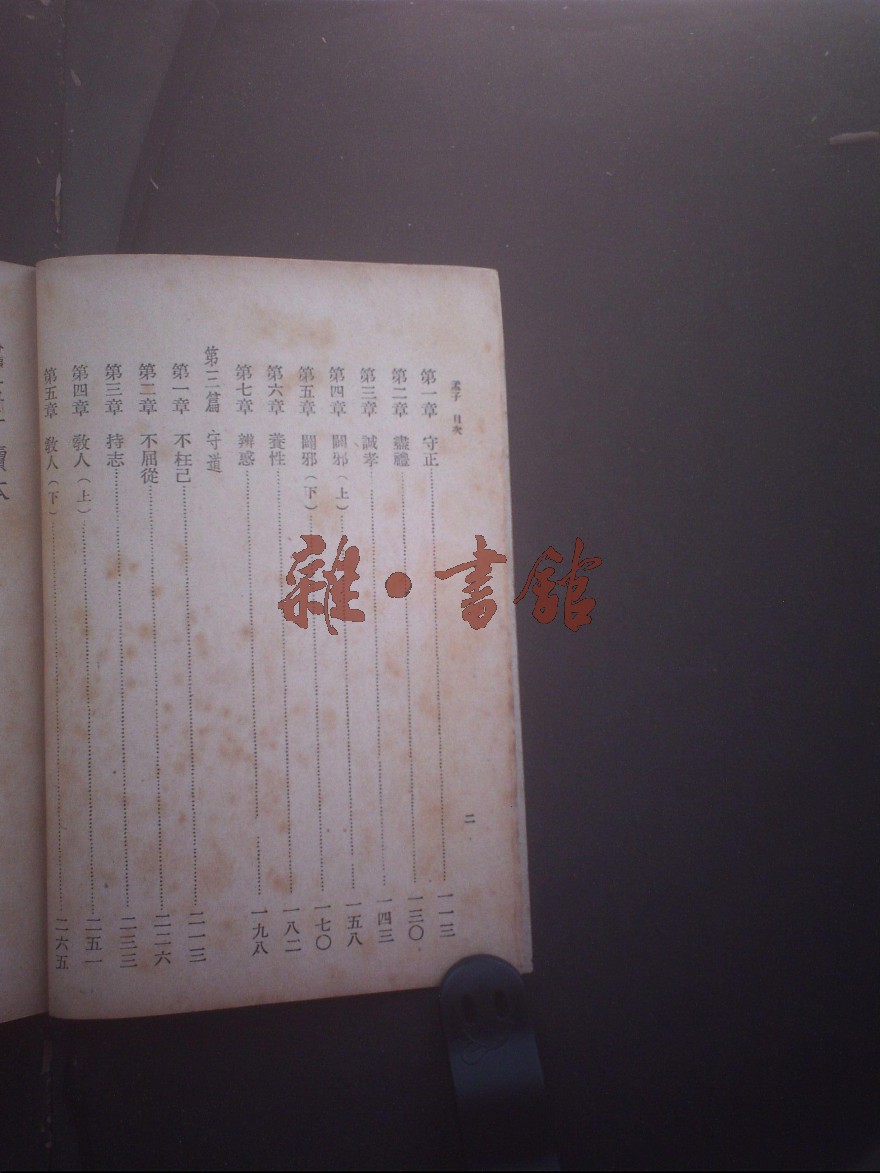 孟子 目次
二
第一章 守正 一一三
第二章 盡禮 一三〇
第三章 誠孝 一四三
第四章 闢邪（上） 一五八
第五章 闢邪（下） 一七〇
第六章 養性 一八二
第七章 辨惑 一九八
第三篇 守道
第一章 不枉己 二一三
第二章 不屈從 二二六
第三章 持志 二三三
第四章 敎人（上） 二五一
第五章 敎人（下） 二六五
雜·書館